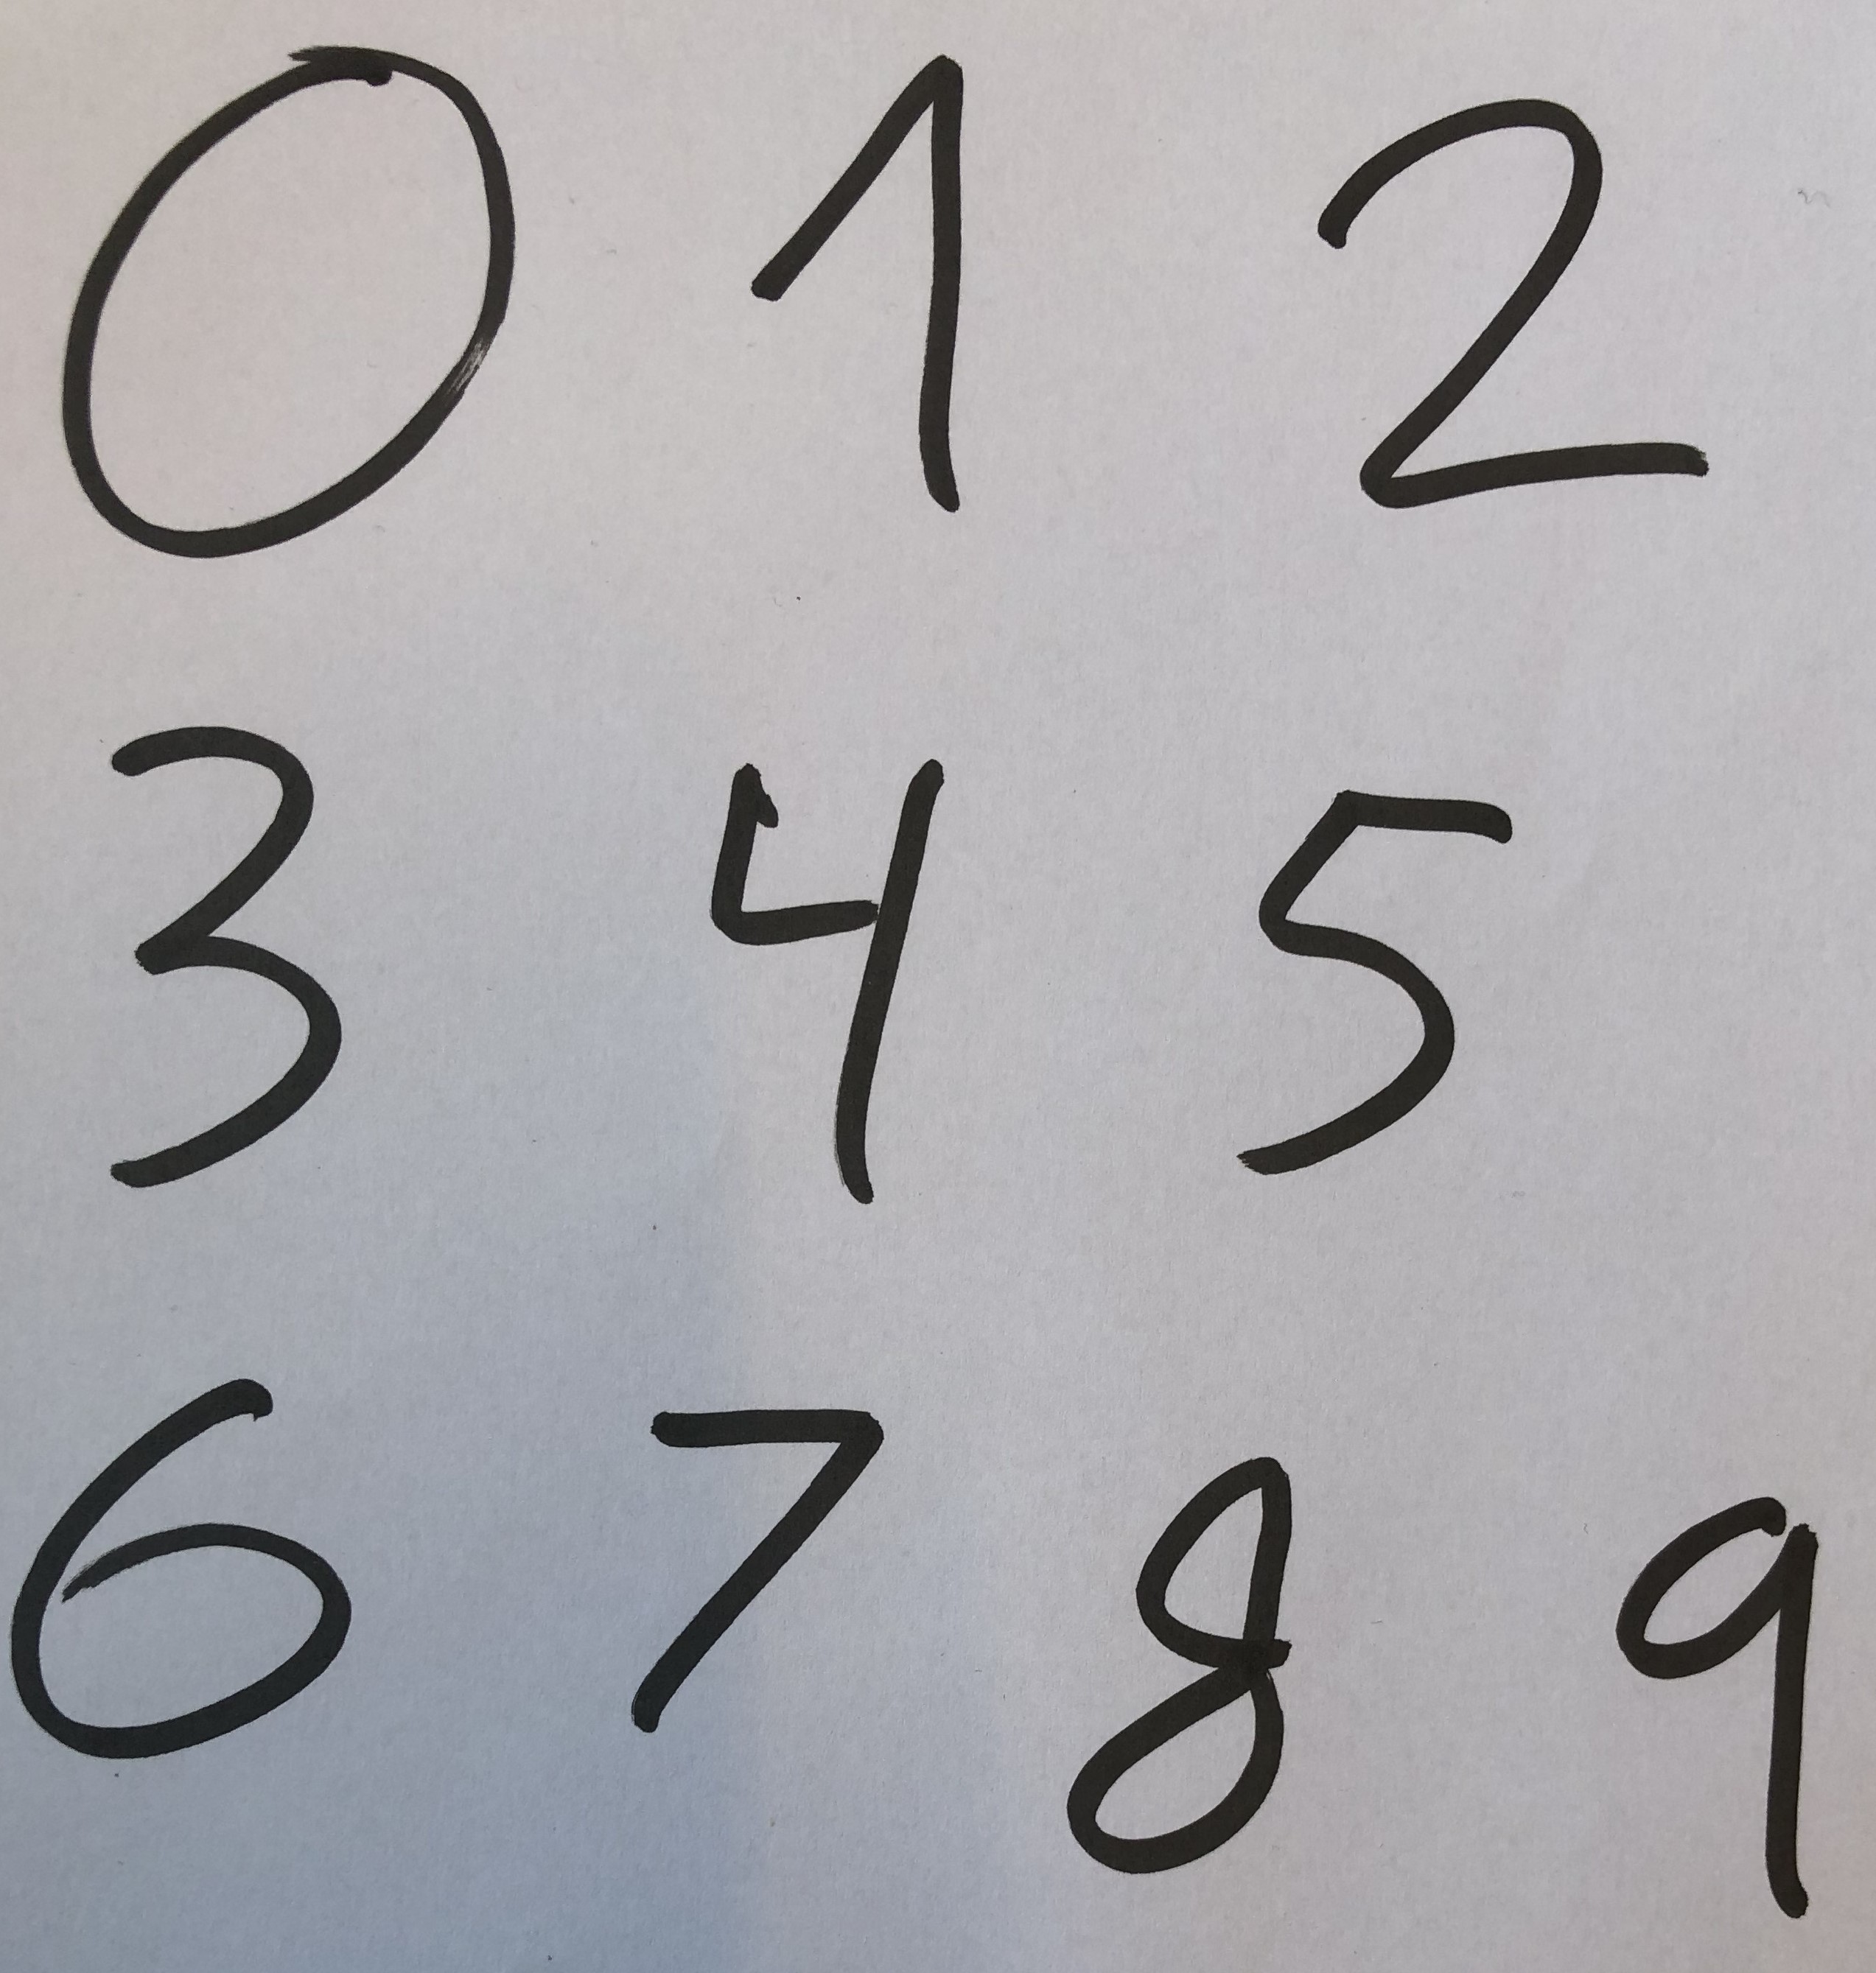 0 1 2
3 4 5
6 7 8 9